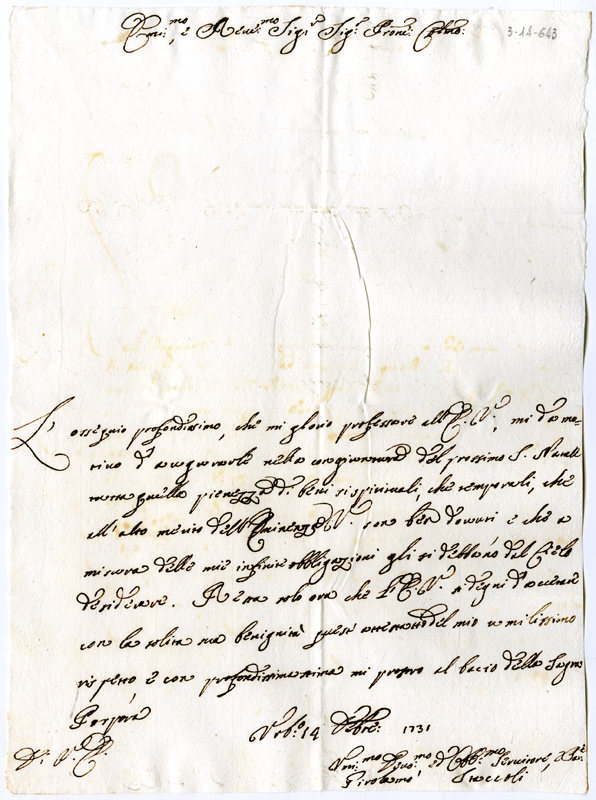 Em:mo, e Reve:mo Sig:r Sig:r Prone: Colmo:
3-14-643
L'ossequio profondissimo, che mi glorio professare all'E. V:, mi dà mo-
tivo d'augurarle nella congiuntura del prossimo S. Natale
tutta quella pienezza di beni sì spirituali, che temporali, che
all'alto merito dell'Eminenza V: son ben dovuti e che a
misura delle mie infinite obbligazioni gli si debbano dal Cielo
desiderare. Resta solo ora che l'E. V: si degni d'accettare
con la solita sua benignità questo attestato del mio umilissimo
rispetto e con profondissima stima mi prostro al bacio della Sagra
Porpora
Urb:o 14 Xbre: 1731
Di V: E:
Um:mo Devo:mo ed Obb:mo Servitore,
Girolamo Staccoli